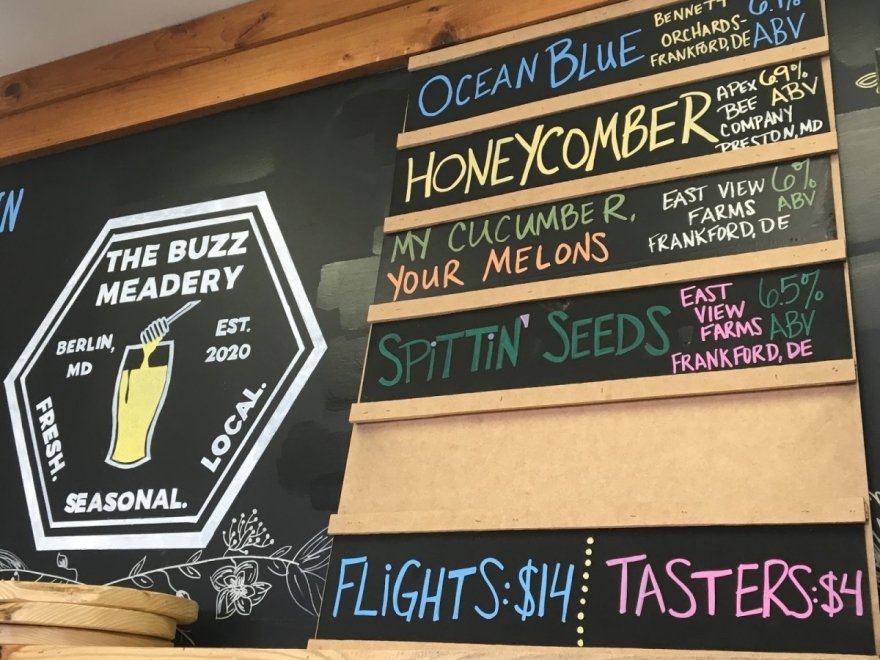 OCEAN BLUE
BENNETT
ORCHARDS-
FRANKFORD, DE
ABV
HONEYCOMBER
APEX
BEE
COMPANY
PRESTON, MD
6.9%
ABV
MY CUCUMBER,
YOUR MELONS
EAST VIEW
FARMS
FRANKFORD, DE
6%
ABV
SPITTIN' SEEDS
EAST
VIEW
FARMS
FRANKFORD, DE
6.5%
ABV
FLIGHTS: $14
TASTERS: $4
THE BUZZ
MEADERY
BERLIN,
MD
EST.
2020
FRESH.
SEASONAL.
LOCAL.